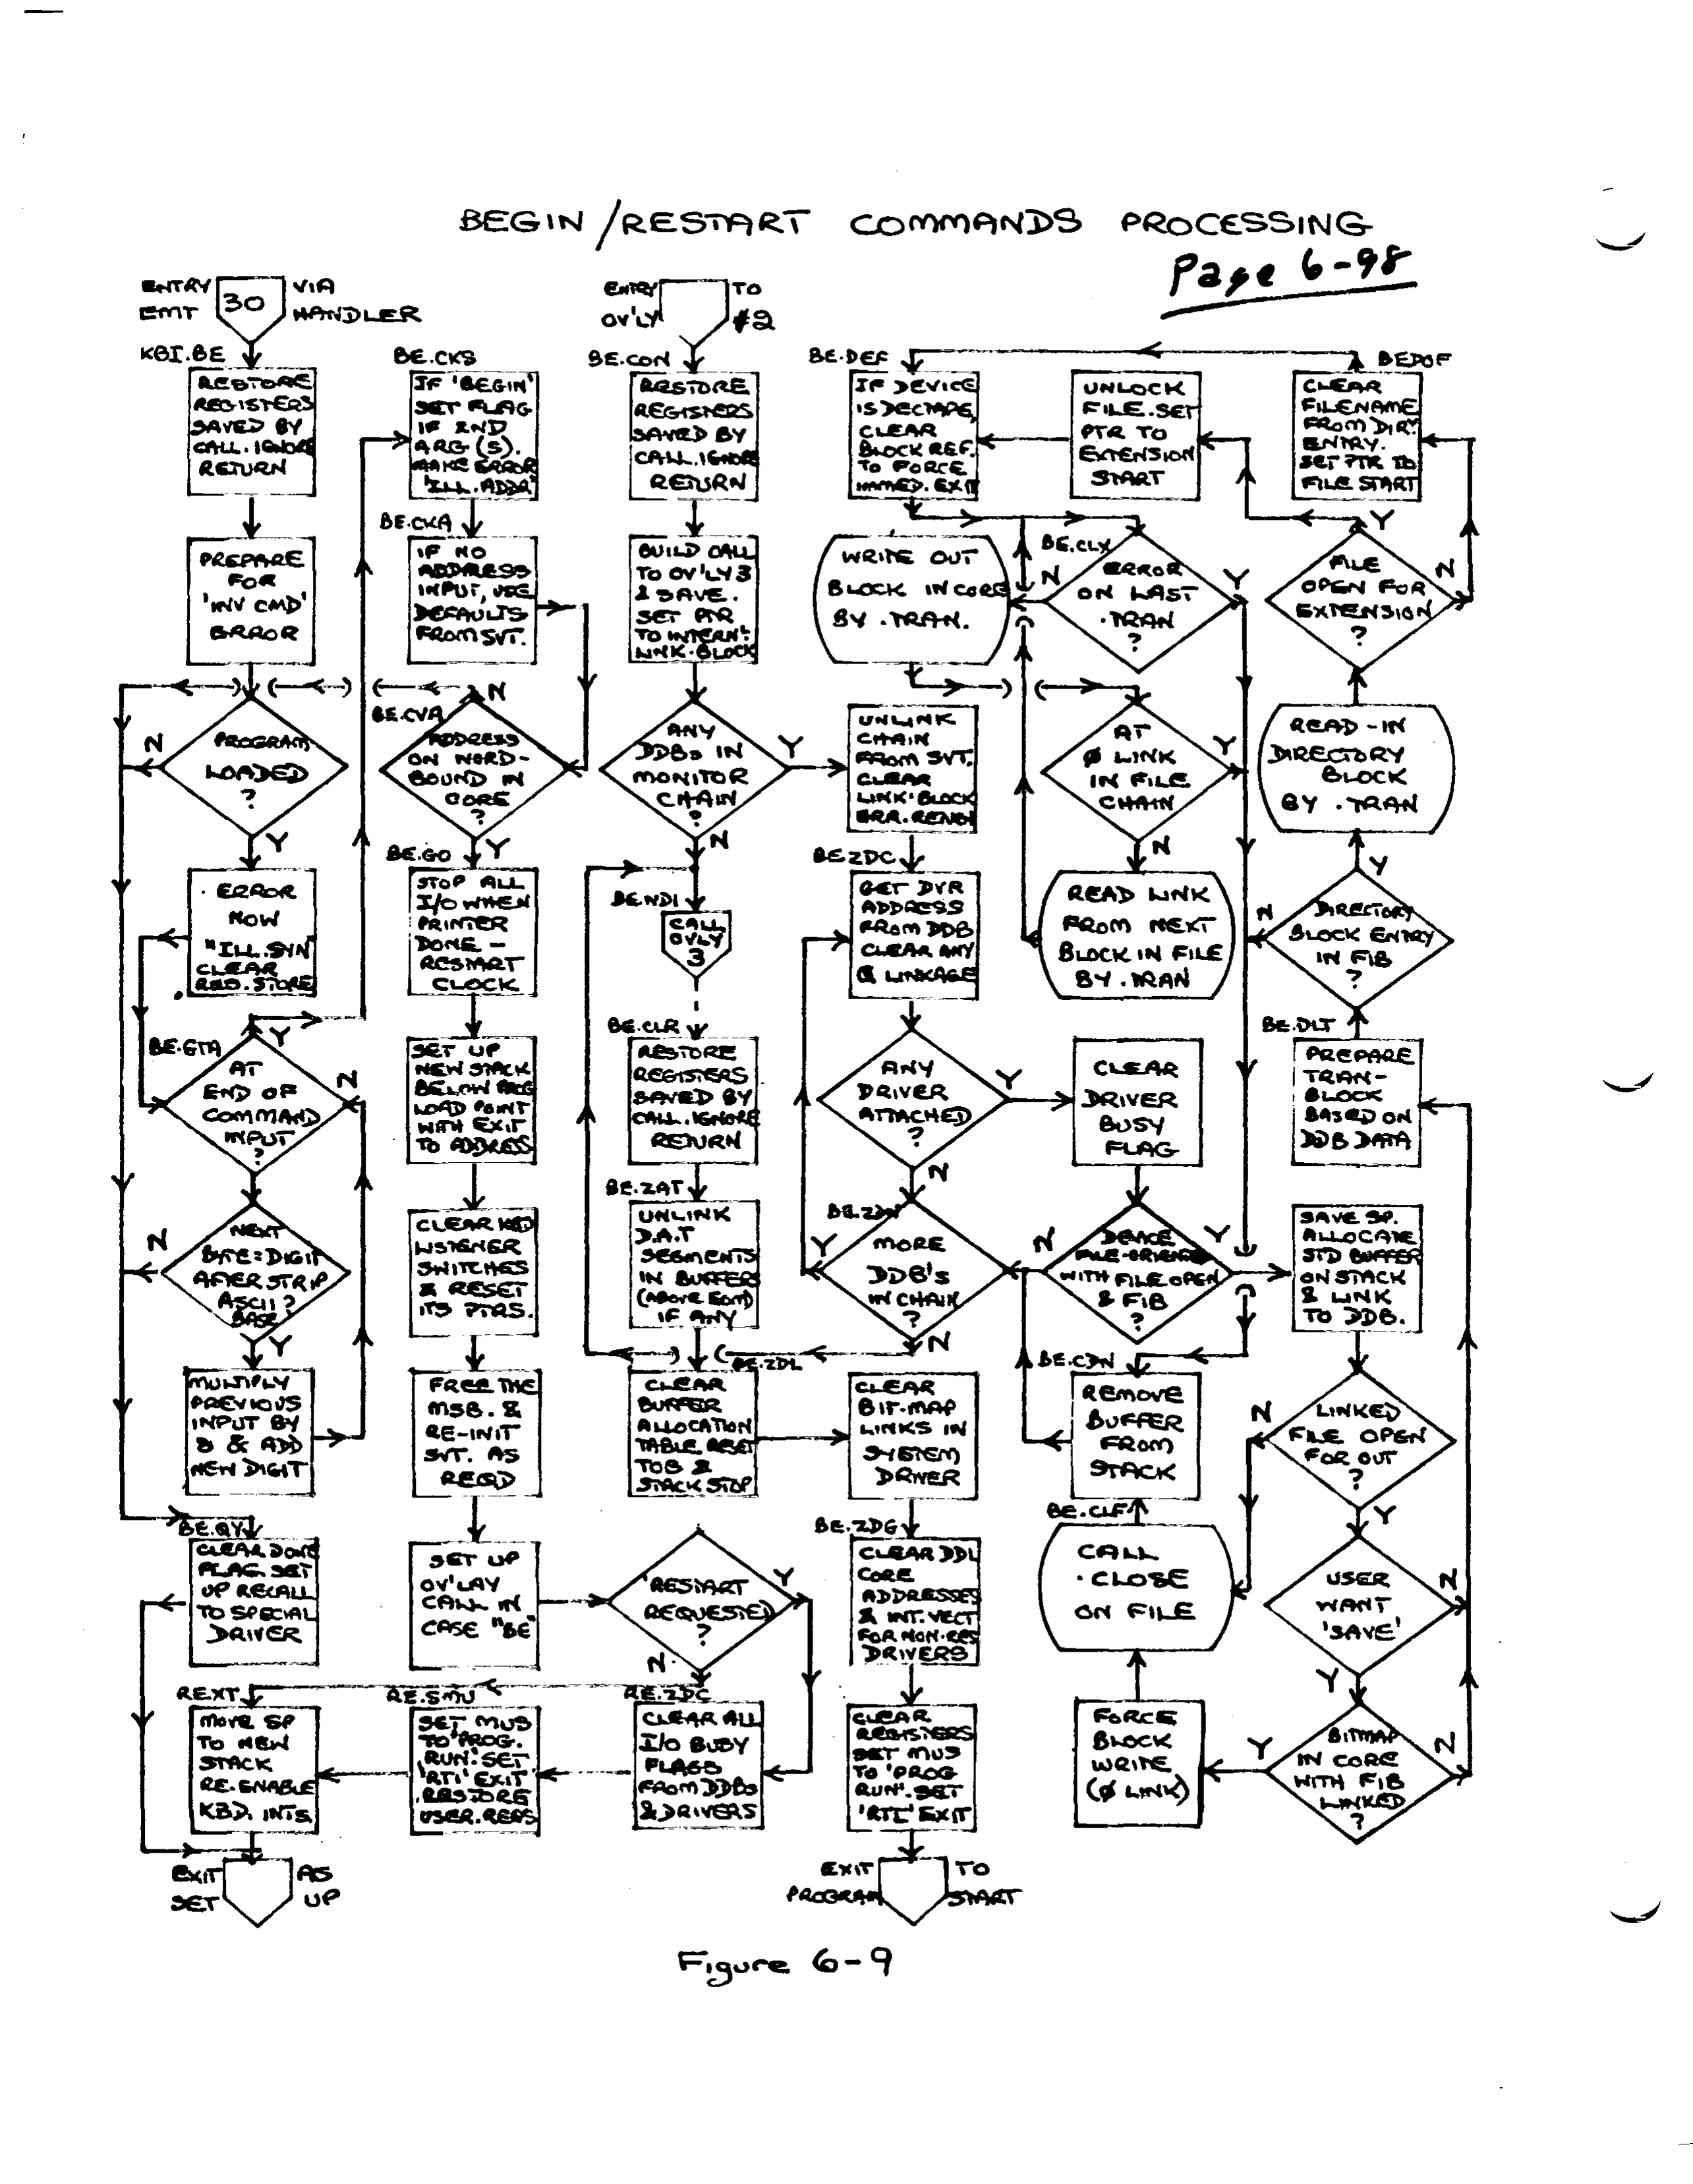 BEGIN/RESTART COMMANDS PROCESSING
Page 6-98
ENTRY VIA
EMT 30 HANDLER
KBI.BE
RESTORE
REGISTERS
SAVED BY
CALL. IGNORE
RETURN
PREPARE
FOR
'INV CMD'
ERROR
N
PROGRAM
LOADED
?
Y
ERROR
NOW
"ILL.SYN"
CLEAR
REG.STORE
BE.GTA
Y
AT
END OF
COMMAND
INPUT
?
N
N
NEXT
BYTE=DIGIT
AFTER STRIP
ASCII
BASE?
Y
MULTIPLY
PREVIOUS
INPUT BY
8 & ADD
NEW DIGIT
BE.QY
CLEAR DONE
FLAG. SET
UP RECALL
TO SPECIAL
DRIVER
REXT
MOVE SP
TO NEW
STACK
RE-ENABLE
KBD. INTS.
EXIT AS
SET UP
BE.CKS
IF 'BEGIN'
SET FLAG
IF 2ND
ARG(S).
MAKE ERROR
'ILL. ADDR'
BE.CKA
IF NO
ADDRESS
INPUT, USE
DEFAULTS
FROM SVT.
N
BE.CVA
ADDRESS
ON WORD-
BOUND IN
CORE
?
BE.GO
Y
STOP ALL
I/O WHEN
PRINTER
DONE -
RESTART
CLOCK
SET UP
NEW STACK
BELOW PROG
LOAD POINT
WITH EXIT
TO ADDRESS
CLEAR KBD
LISTENER
SWITCHES
& RESET
ITS PTRS.
FREE THE
MSB. &
RE-INIT
SVT. AS
REQD
SET UP
OV'LAY
CALL IN
CASE "BE"
RE.SMU
SET MUS
TO 'PROG.
RUN'. SET
'RTI' EXIT
. RESTORE
USER. REGS
ENTRY TO
OV'LY #2
BE.CON
RESTORE
REGISTERS
SAVED BY
CALL. IGNORE
RETURN
BUILD CALL
TO OV'LY 3
& SAVE.
SET PTR
TO INTERNL
LINK-BLOCK
ANY
DDBs IN
MONITOR
CHAIN
?
Y
N
BE.NDI
CALL
OVLY
3
BE.CLR
RESTORE
REGISTERS
SAVED BY
CALL. IGNORE
RETURN
BE.ZAT
UNLINK
D.A.T
SEGMENTS
IN BUFFERS
(ABOVE EOM)
IF ANY
CLEAR
BUFFER
ALLOCATION
TABLE RESET
TOB &
STACK STOP
'RESTART
REQUESTED
?
Y
N
RE.ZDC
CLEAR ALL
I/O BUSY
FLAGS
FROM DDBs
& DRIVERS
BE.DEF
IF DEVICE
IS DECTAPE,
CLEAR
BLOCK REF.
TO FORCE
IMMED. EXIT
WRITE OUT
BLOCK IN CORE
BY .TRAN.
UNLINK
CHAIN
FROM SVT.
CLEAR
LINK-BLOCK
BE.ZDC
GET DVR
ADDRESS
FROM DDB
CLEAR ANY
Q LINKAGE
ANY
DRIVER
ATTACHED
?
Y
N
BE.ZDN
Y
MORE
DDB'S
IN CHAIN
?
N
BE.ZDL
CLEAR
BIT-MAP
LINKS IN
SYSTEM
DRIVER
BE.ZDG
CLEAR DDL
CORE
ADDRESSES
& INT. VECT
FOR NON-RES
DRIVERS
CLEAR
REGISTERS
SET MUS
TO 'PROG
RUN'. SET
'RTI' EXIT
EXIT TO
PROGRAM START
UNLOCK
FILE. SET
PTR TO
EXTENSION
START
BE.CLX
N
ERROR
ON LAST
.TRAN
?
Y
AT
Ø LINK
IN FILE
CHAIN
Y
N
READ LINK
FROM NEXT
BLOCK IN FILE
BY .TRAN
CLEAR
DRIVER
BUSY
FLAG
N
DEVICE
FILE-ORIENTED
WITH FILE OPEN
& FIB
?
Y
BE.CDN
REMOVE
BUFFER
FROM
STACK
BE.CLF
CALL
.CLOSE
ON FILE
FORCE
BLOCK
WRITE
(Ø LINK)
BEDOF
CLEAR
FILENAME
FROM DIR.
ENTRY.
SET PTR TO
FILE START
Y
FILE
OPEN FOR
EXTENSION
?
N
READ-IN
DIRECTORY
BLOCK
BY .TRAN
Y
N
DIRECTORY
BLOCK ENTRY
IN FIB
?
BE.DLT
PREPARE
TRAN-
BLOCK
BASED ON
DDB DATA
SAVE SP.
ALLOCATE
STD BUFFER
ON STACK
& LINK
TO DDB.
N
LINKED
FILE OPEN
FOR OUT
?
Y
USER
WANT
'SAVE'
N
Y
BITMAP
IN CORE
WITH FIB
LINKED
?
Y
N
Figure 6-9